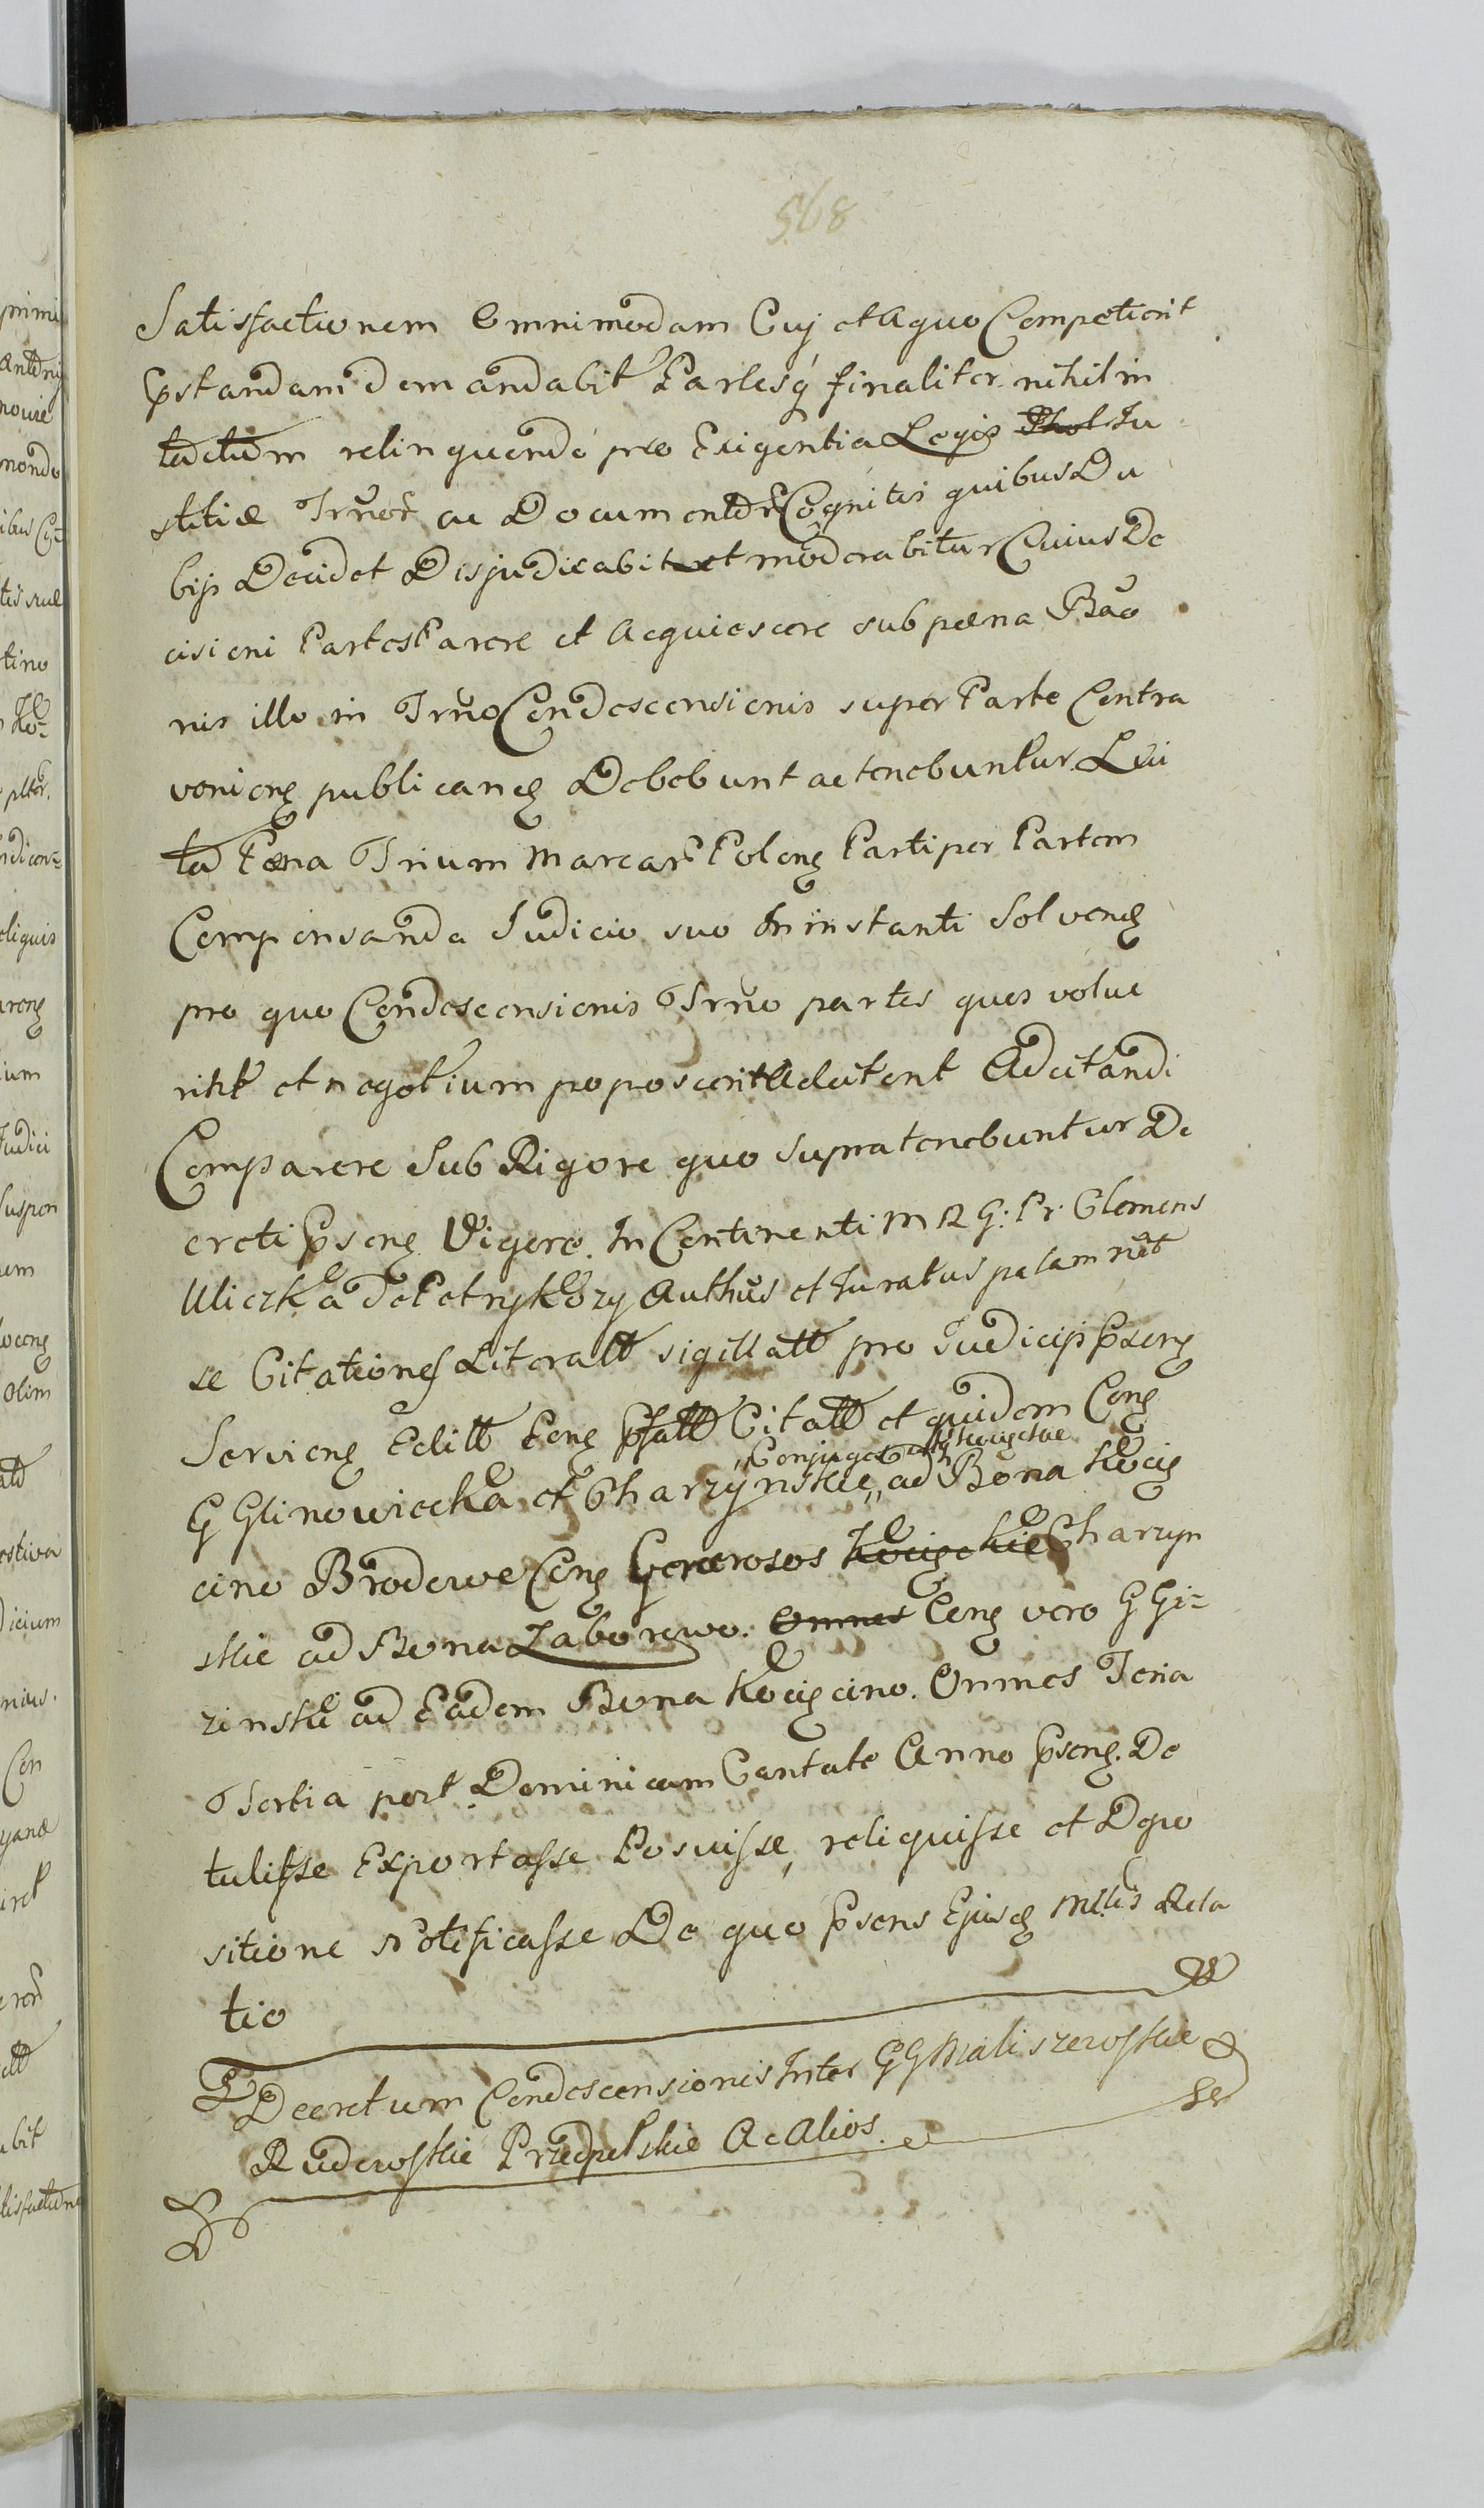 568
Satisfactionem Omnimodam Cuj et a quo Competierit
Pstandam demandabit Partesq finaliter nihil in
tactum relinquendo pro Exigentia Legis Ju
stitiæ Trnor ac Documentor Cognitis quibus Du
bijs Decidet Disjudicabit et moderabitur Cuius De
cisioni Partes Parere et Acquiescere sub pœna Bao
nis illo in Trno Condescensionis super Parte Contra
venien publican Debebunt ac tenebuntur Lui
ta Pœna Trium Marcar Polon Parti per Partem
Compensanda Judicio suo In instanti Solven
pro quo Condescensionis Trno partes quos volue
rint et negotium poposcerit Adcitent Adcitandi
Comparere Sub Rigore quo supra tenebuntur De
creti Psen Vigore. In Continenti M R G: Pr: Clemens
Uliczka de Petrykozy Authus et Juratus palam rcte
se Citationes Literatt sigillatt pro Judicijs Psen
Servien Editt Ten Psatt Citatt et quidem Con
Conjuges
G Glinowiecka et Charzynskie ad Bona Kocię
cino Brodowe Con Generosos Kocięckie Charzyn
skie ad Bona Zaborowo. Omnes Con vero G Gi=
zinskie ad Eadem Bona Kocięcino. Omnes Feria
Tertia post Dominicam Cantate Anno Psen. De
tulisse Exportasse Posuisse, reliquisse et Depo
sitione Notificasse De quo Psens Ejusd Mttis Rela
tio
Decretum Condescensionis Inter GG Maliszewskie
Rudowskie Przedpelskie Ac Alios.